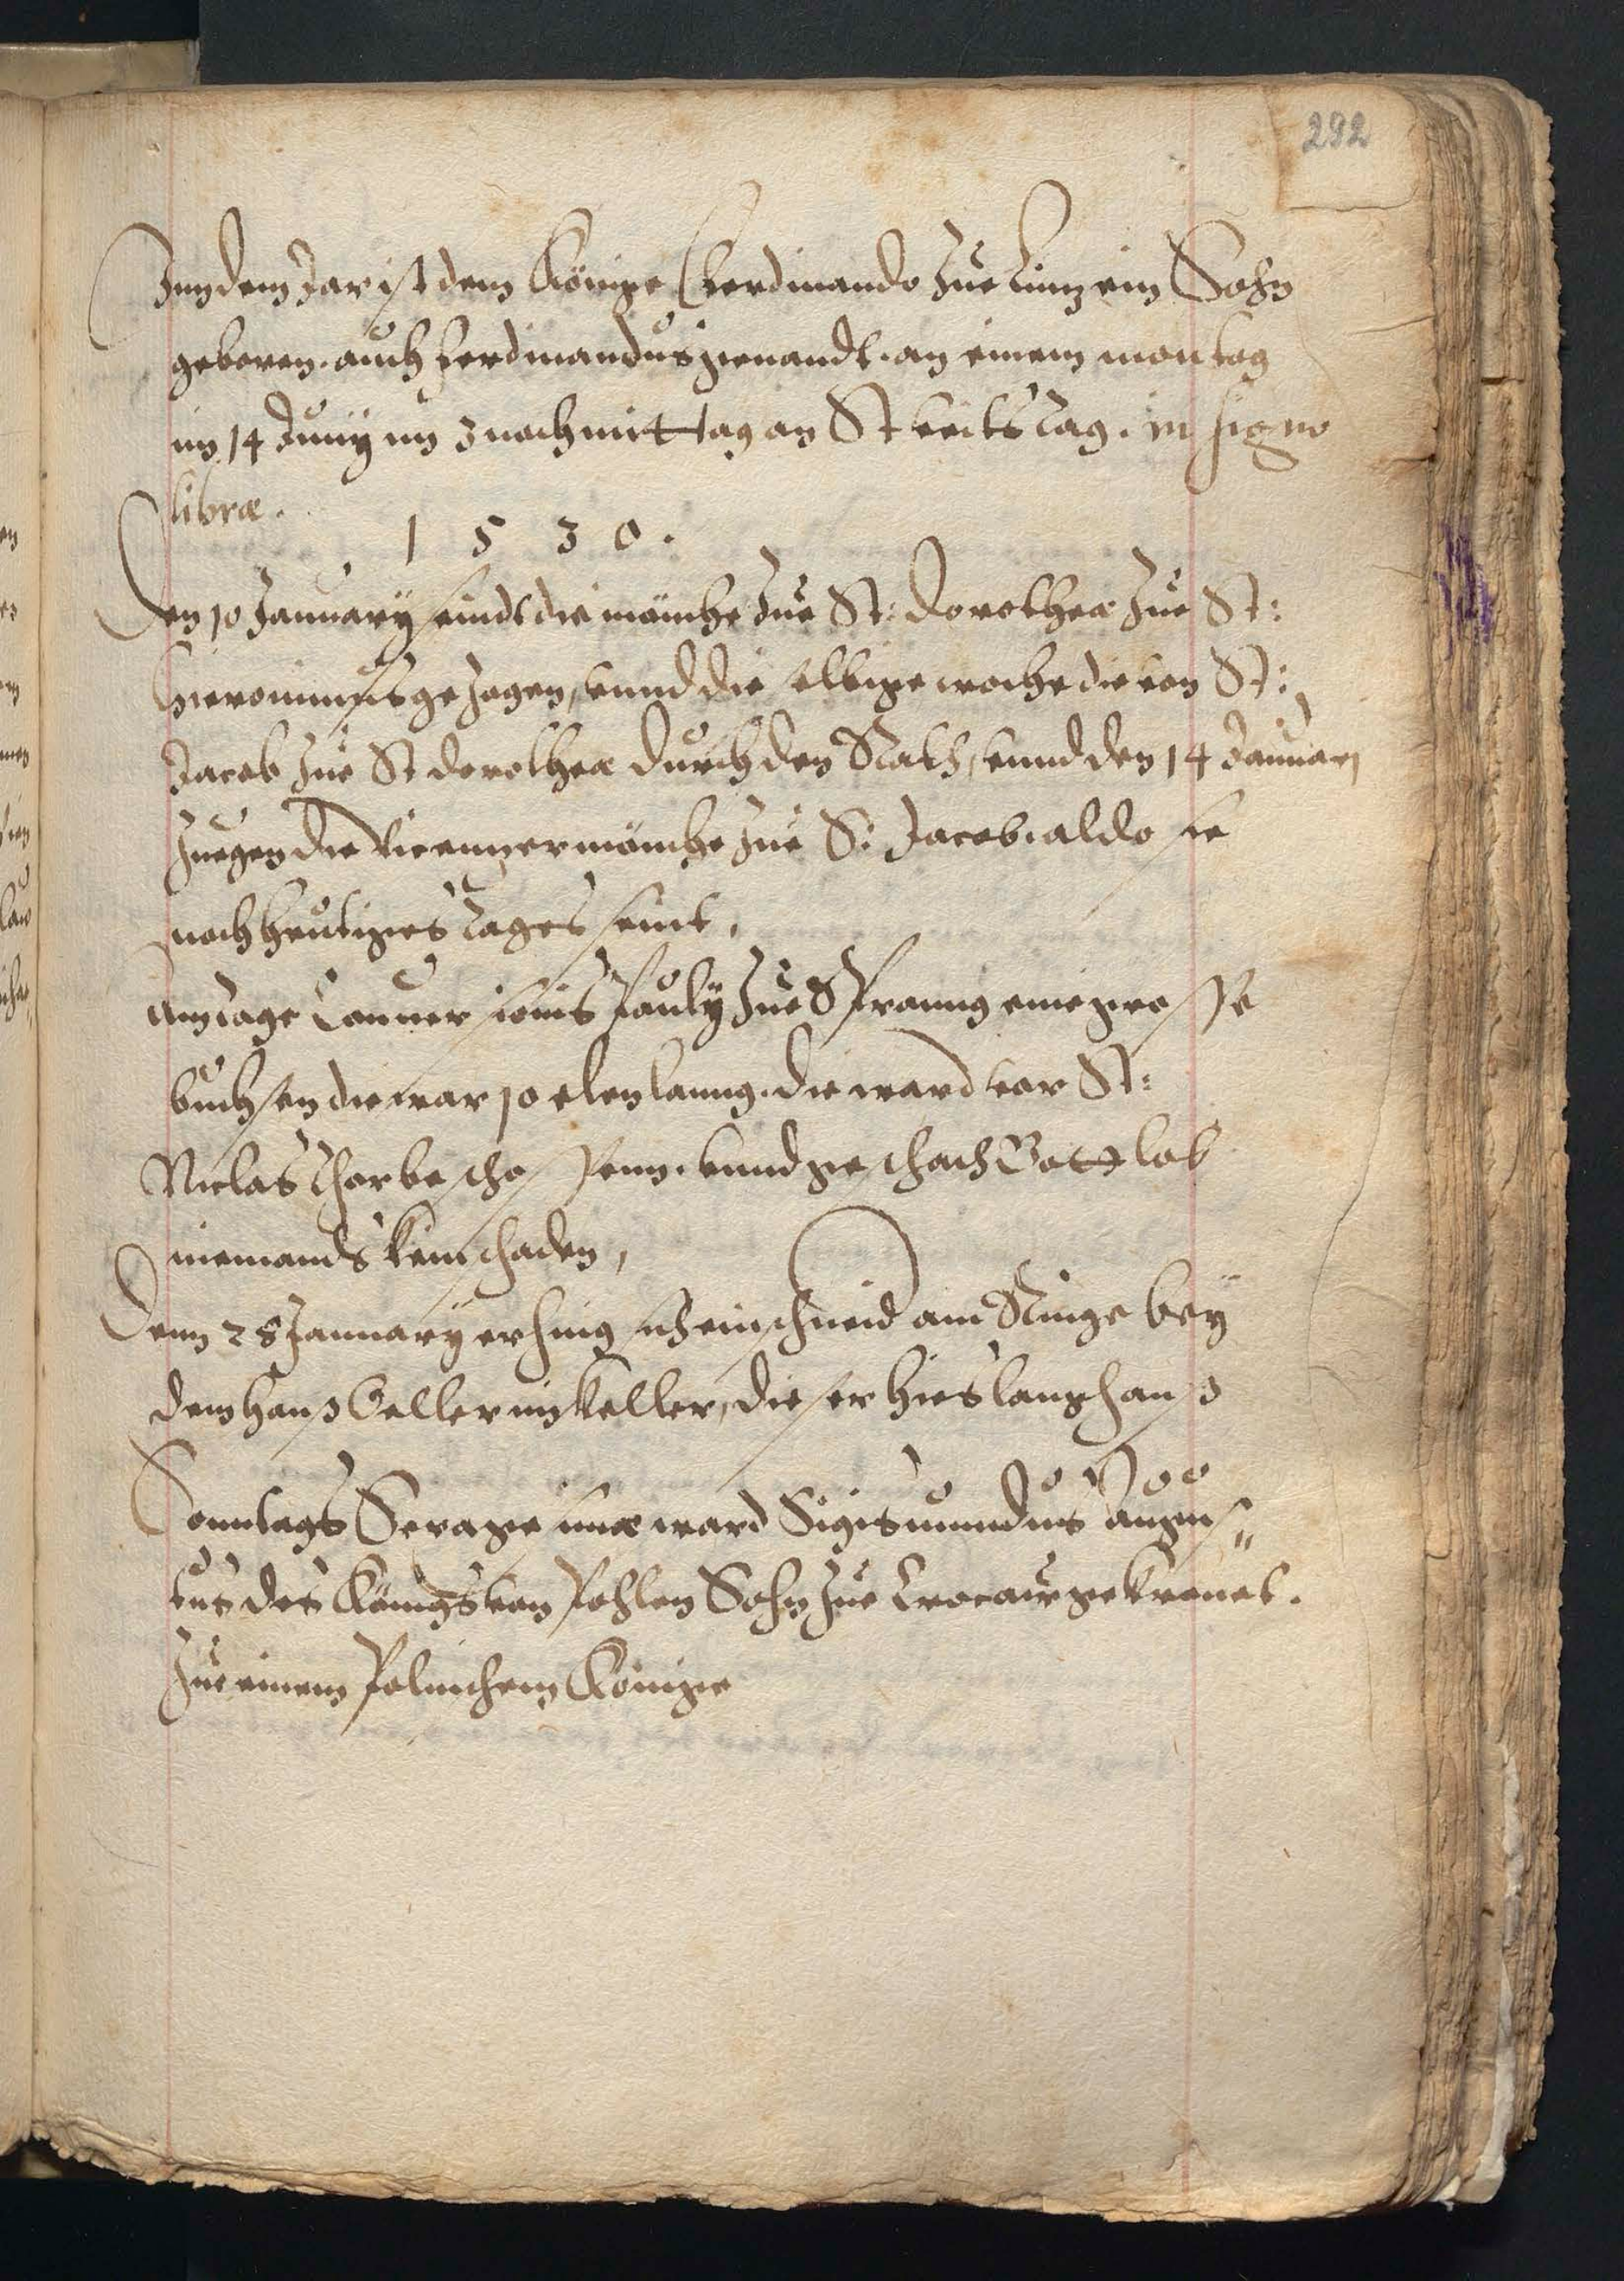 292
Inn dem Jar ist dem Könige Ferdinando zue Linz ein Sohn
geboren. auch Ferdinandus genandt. an einem montag
im 14 Junij um 3 nachmittag an St veits tag. in signo
libræ.
1 5 3 0.
Den 10 January seindt die mönche zue St: Dorothea zue St:
Hieronimus gezogen, vnnd die selbige woche die von St:
Jacob zue St dorothea durch den Rath, vnnd den 14 Januarj
zuegen die Vicenzer mönche zue S: Jacob. aldo sie
noch heutiges tages seint,
Am tage Conuersionis Pauly zue Spranng eine grosse
buchsen die war 10 elen lanng. die ward vor St:
Niclas thor beschossenn. vnnd geschach Gott lob
niemands kein schaden,
Denn 28 January erhing sich ein schneid am Ringe bey
dem Hanß Geller im keller, dieser hies lang hanß
Sonntags Exurge ward Sigismundus Augus=
tus des Königs von Pohlen Sohn zue Crocaw gekrönet.
zue einem Polnischem Könige